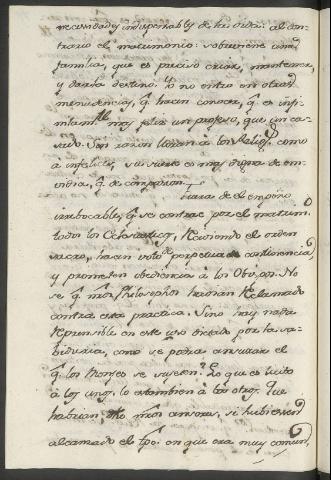 necesidades indispensables de su orden: al con-
trario el matrimonio: sobreviene una
familia, que es preciso criar, mantener,
y darla destino. Yo no entro en otras
menudencias, q. hacen conocer, q. es infi-
nitam.te mas feliz un profeso, que un ca-
sado. Sin razon lloran a los Relig.s como
a infelices, su suerte es mas digna de em-
vidia, q. de compasion.
fuera de el empeño
irrebocable, q. se contrae por el matrim.o
todos los Eclesiasticos, Reciviendo el orden
sacro, hacen voto de perpetua continencia,
y prometen obediencia à los Obispos. No
se q. nros Philosophos hayan Reclamado
contra esta practica. Sino hay nada
reprensible en este uso dictado por la sa-
biduria, como se podra censurar el
q. los Monges se sujeten? Lo que es licito
à los unos, lo es tambien à los otros. Que
habrian dho nros censores, si hubiesen
alcanzado el tpo. en que era muy comun,